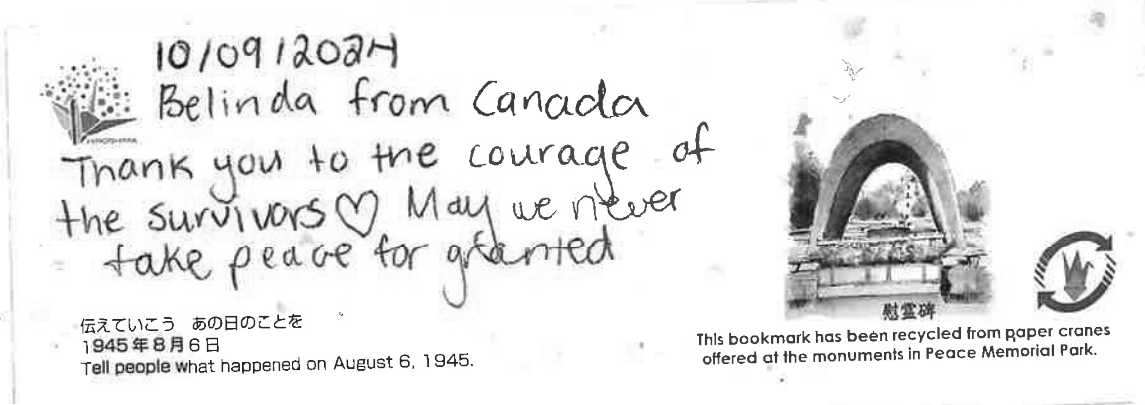 10/09/2024
Belinda from Canada
HIROSHIMA
Thank you to the courage of
the survivors♡ May we never
take peace for granted
伝えていこう あの日のことを
1945年8月6日
Tell people what happened on August 6, 1945.
慰霊碑
This bookmark has been recycled from paper cranes
offered at the monuments in Peace Memorial Park.